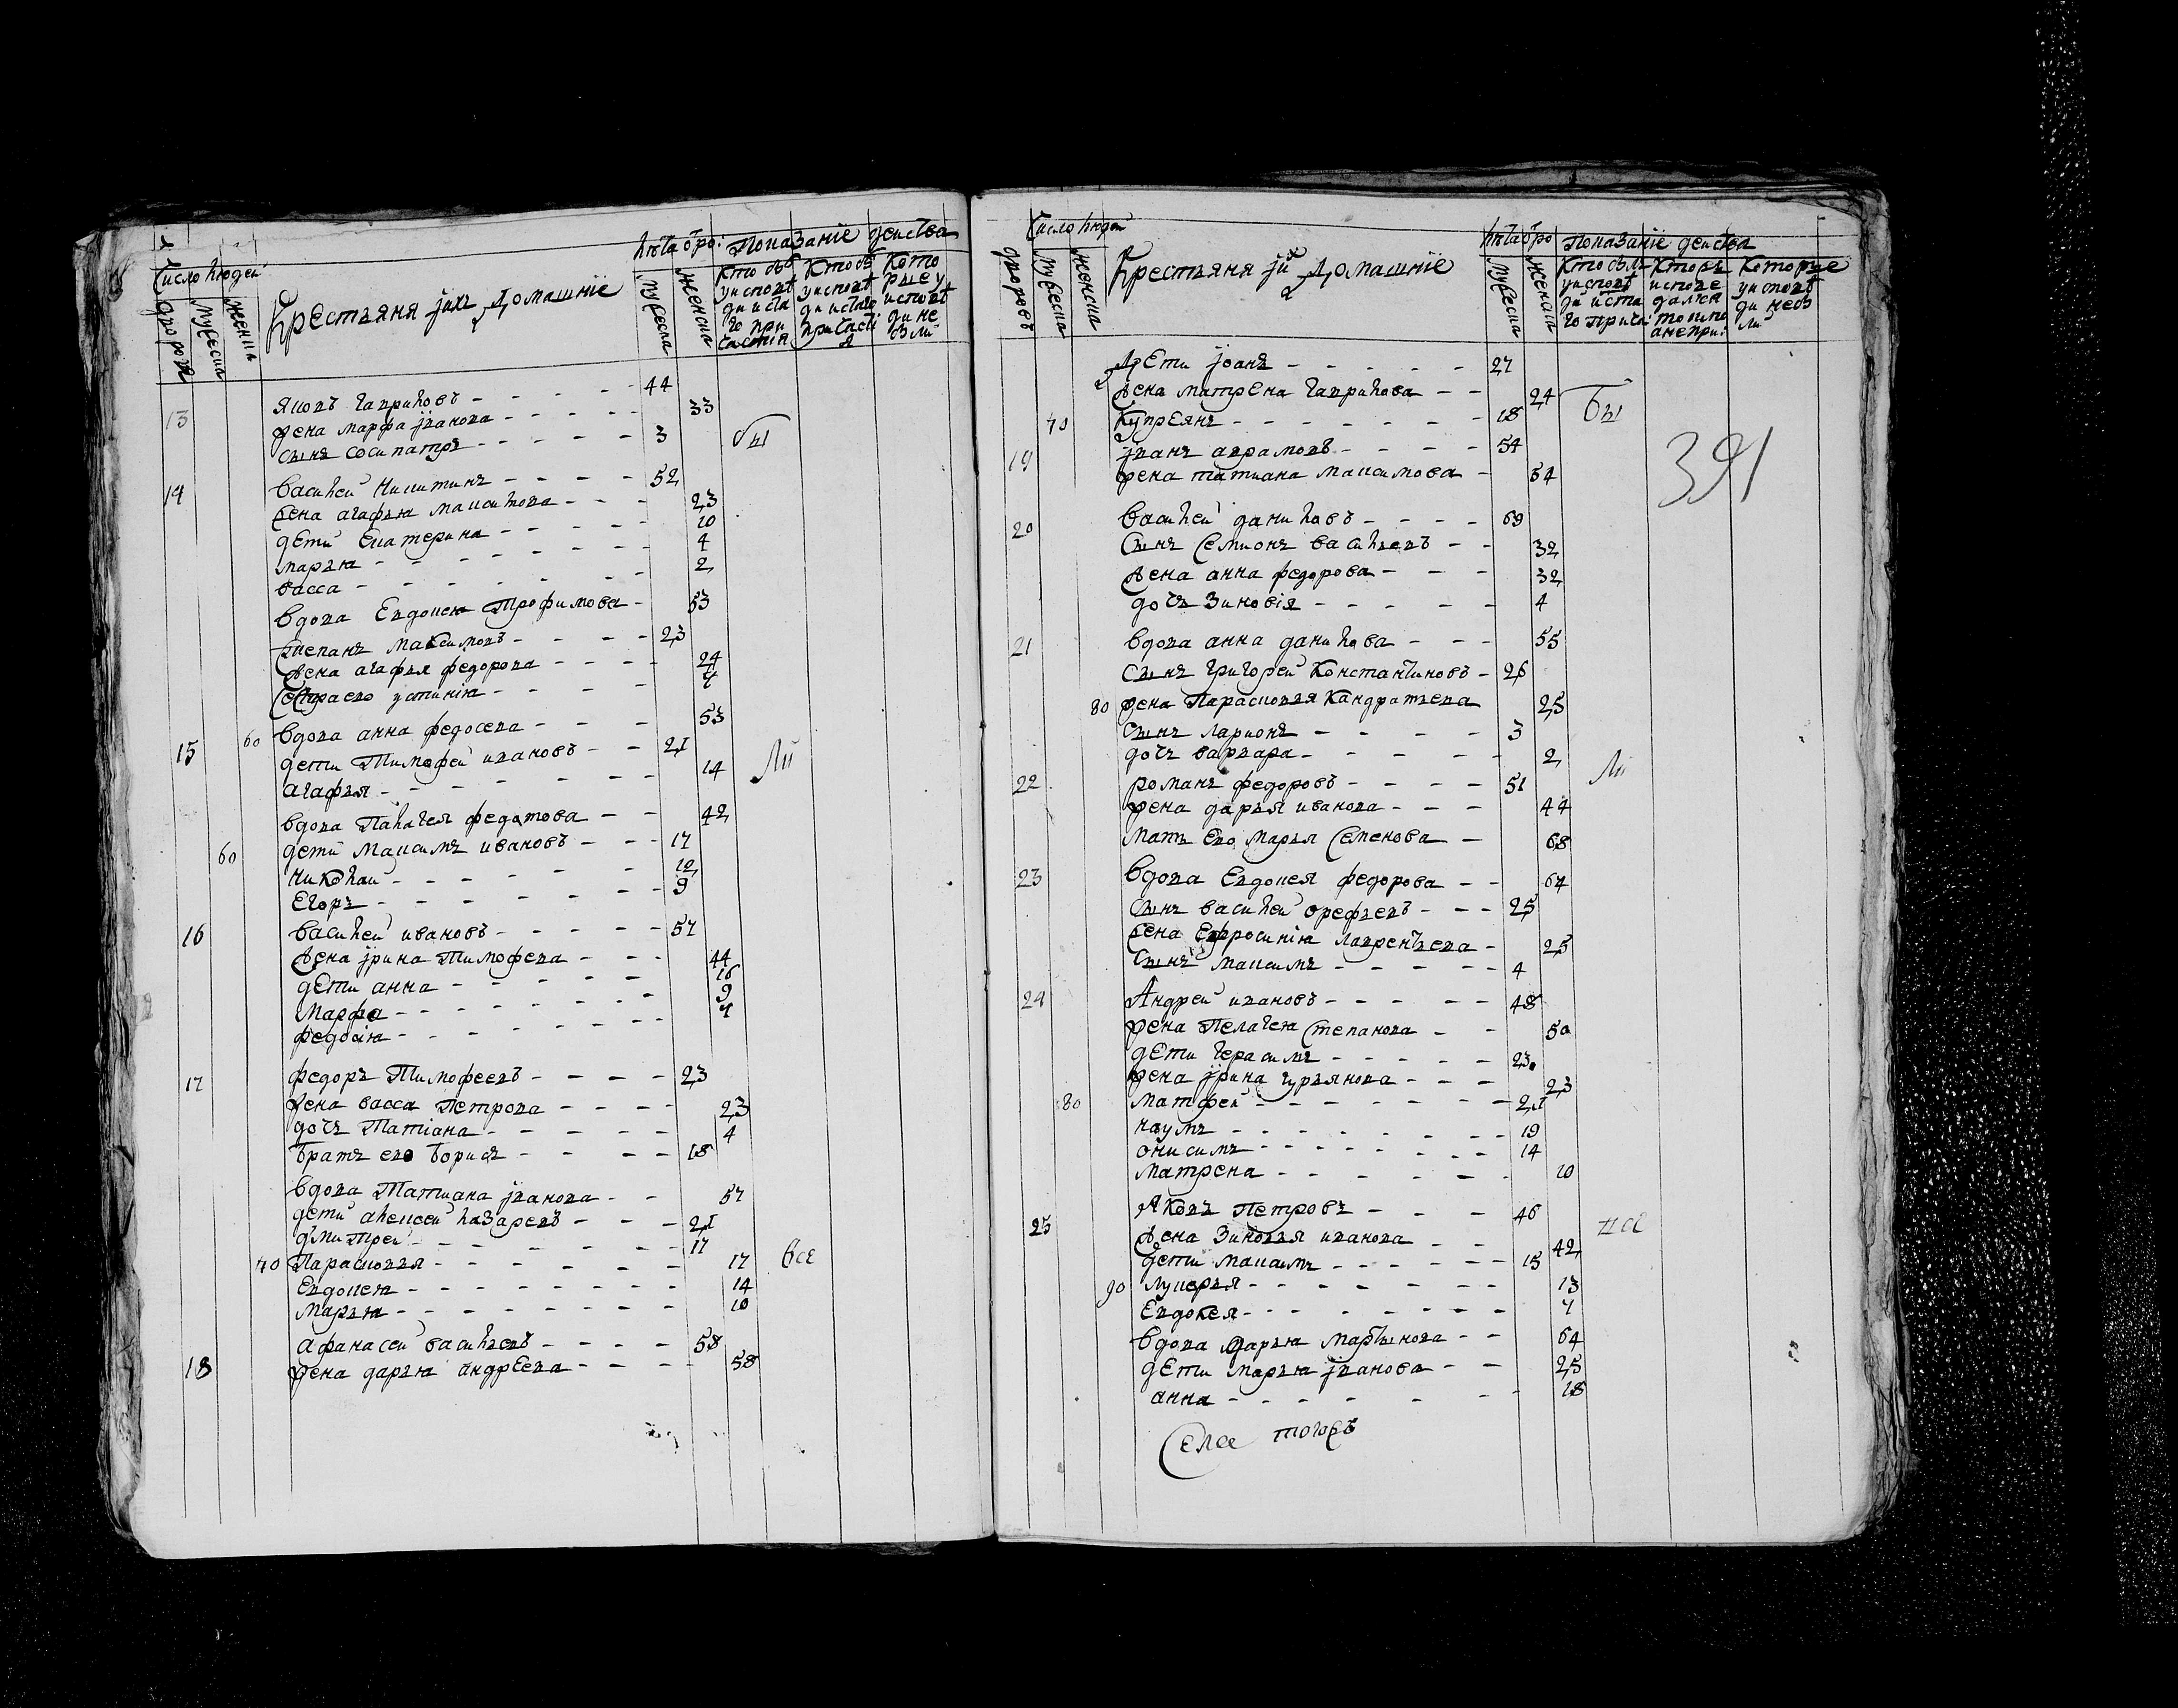 Число людей
Крестьяня іихъ домашніе
лѣта б ро:
Показаніе действа
дворов
мужеска
женска
мужеска
женска
13 Яковъ Гавриловъ - - - - 44
жена марфа іванова - - - - - 33
сынъ сосипатръ - - - - - 3
бы
14 василей Никитинъ - - - - 52
жена агафья максимова - - - 23
дети Екатерина - - - - - 10
марья - - - - - - 4
васса - - - - - - 2
вдова Евдокея Трофимова - 53
степанъ максимовъ - - - - 23
жена агафья федорова - - - - 24
сестра ево устинія - - - - 7
15 60 вдова анна федосева - - - 53
дети Тимофей ивановъ - - 21
агафья - - - - - - 14
ли
вдова Палагея федотова - - 42
60 дети максимъ ивановъ - - - 17
николаи - - - - - - 12
Егоръ - - - - - - - 9
16 василей ивановъ - - - - - 57
жена ірина Тимофева - - - 44
дети анна - - - - - 16
Марфа - - - - - - - 9
федосія - - - - - - 7
17 федоръ Тимофеевъ - - - - 23
жена васса Петрова - - - - 23
дочь Татіана - - - - - 4
братъ его Борисъ - - - - 18
вдова Татиана іванова - - 57
дети алексей лазаревъ - - - 21
дмитреи - - - - - - - 17
70 Парасковья - - - - - - 17
все
Евдокея - - - - - - - - 14
Марья - - - - - - - - 10
афанасеи васильевъ - - - - 58
18 жена дарья андреева - - - - 58
Число людей
Крестьяня іи домашніе
лѣта б ро
Показаніе действа
дворовъ
мужеска
женска
мужеска
женска
дети іоанъ - - - - - - 27
жена матрена Гаврилова - - 24
бы
70 Купреянъ - - - - - - - 18
391
19 іванъ аврамовъ - - - - 54
жена татиана максимова - 54
20 василей даниловъ - - - - 69
сынъ семионъ васильевъ - - 32
жена анна федорова - - - 32
дочь Зиновія - - - - - 4
21 вдова анна данилова - - - 55
сынъ григорей Константиновъ - 26
80 жена Парасковья Кандратьева 25
сынъ ларионъ - - - - - 3
дочь варвара - - - - - - 2
22 романъ федоровъ - - - - 51
ли
жена дарья иванова - - - 44
мать Его марья Семенова - 68
23 вдова Евдокея федорова - - 67
сынъ василей орефьевъ - - - 25
жена Ефросинія лаврентьева - 25
сынъ максимъ - - - - - 4
24 Андрей ивановъ - - - - - 48
жена Пелагея Степанова - - 50
дети герасимъ - - - - - 23
жена ірина гурьянова - - - 23
80 матфеи - - - - - - - 21
наумъ - - - - - - - - 19
онисимъ - - - - - - - 14
матрена - - - - - - 10
25 Яковъ Петровъ - - - 46
жена Зиновья иванова - - 42
дети максимъ - - - - - - 15
90 лукерья - - - - - - - - 13
Евдокея - - - - - - - - 7
вдова Дарья Мартынова - - 64
дети марья іванова - - 25
анна - - - - - - 18